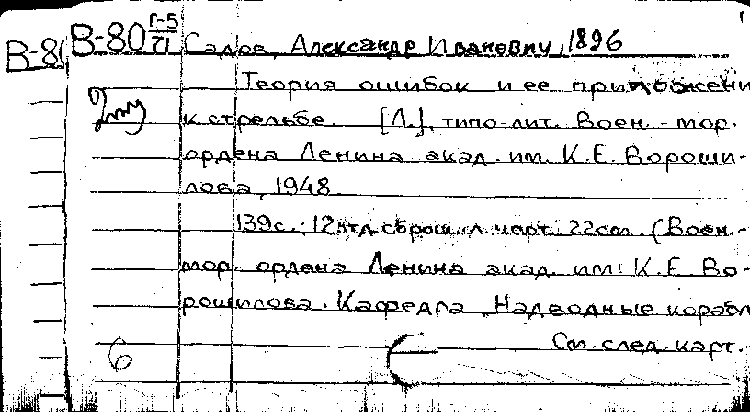 В-80 Г-5/71 Садов, Александр Иванович, 1896
Теория ошибок и ее приложени
к стрельбе. [Л.], типо-лит. Воен.-мор.
ордена Ленина акад. им. К.Е. Вороши-
лова, 1948.
139 с.; 12 отд. сброш. л. черт. 22 см. (Воен.-
мор. ордена Ленина акад. им. К.Е. Во-
рошилова. Кафедра "Надводные корабл
См. след. карт.
6